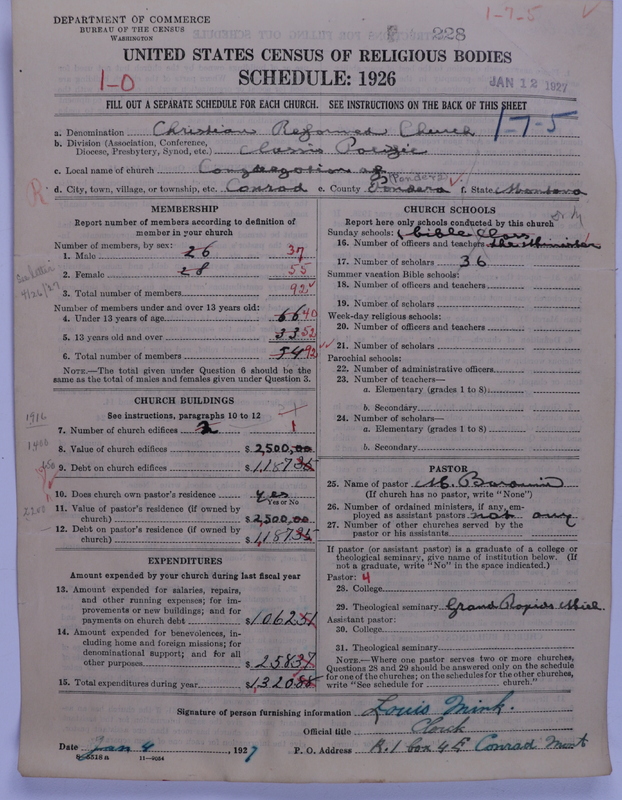 DEPARTMENT OF COMMERCE
BUREAU OF THE CENSUS
WASHINGTON
228
1-7-5
UNITED STATES CENSUS OF RELIGIOUS BODIES
SCHEDULE: 1926
1-0
JAN 12 1927
FILL OUT A SEPARATE SCHEDULE FOR EACH CHURCH. SEE INSTRUCTIONS ON THE BACK OF THIS SHEET
1-7-5
a. Denomination Christian Reformed Church
b. Division (Association, Conference, Diocese, Presbytery, Synod, etc.) Classis Pacific
c. Local name of church Congregation of
R
d. City, town, village, or township, etc. Conrad e. County Pondera (Pondera) f. State Montana
MEMBERSHIP
Report number of members according to definition of member in your church
Number of members, by sex:
1. Male 26 37
2. Female 28 55
3. Total number of members 92
See letter 4/26/27
Number of members under and over 13 years old:
4. Under 13 years of age 66 40
5. 13 years old and over 33 52
6. Total number of members 54 92
NOTE.—The total given under Question 6 should be the same as the total of males and females given under Question 3.
CHURCH BUILDINGS
See instructions, paragraphs 10 to 12
1916
7. Number of church edifices 2 1
8. Value of church edifices $2,500,00
9. Debt on church edifices $1187 35
10. Does church own pastor's residence yes
Yes or No
11. Value of pastor's residence (if owned by church) $2,500,00
12. Debt on pastor's residence (if owned by church) $1187 35
EXPENDITURES
Amount expended by your church during last fiscal year
13. Amount expended for salaries, repairs, and other running expenses; for improvements or new buildings; and for payments on church debt $1062 51
14. Amount expended for benevolences, including home and foreign missions; for denominational support; and for all other purposes $258 37
15. Total expenditures during year $1320 88
CHURCH SCHOOLS
Report here only schools conducted by this church
Sunday schools: Bible Class
16. Number of officers and teachers the Minister
17. Number of scholars 36
Summer vacation Bible schools:
18. Number of officers and teachers
19. Number of scholars
Week-day religious schools:
20. Number of officers and teachers
21. Number of scholars
Parochial schools:
22. Number of administrative officers
23. Number of teachers—
a. Elementary (grades 1 to 8)
b. Secondary
24. Number of scholars—
a. Elementary (grades 1 to 8)
b. Secondary
PASTOR
25. Name of pastor M.
(If church has no pastor, write "None")
26. Number of ordained ministers, if any, employed as assistant pastors not any
27. Number of other churches served by the pastor or his assistants
If pastor (or assistant pastor) is a graduate of a college or theological seminary, give name of institution below. (If not a graduate, write "No" in the space indicated.)
Pastor: 4
28. College
29. Theological seminary Grand Rapids Mich.
Assistant pastor:
30. College
31. Theological seminary
NOTE.—Where one pastor serves two or more churches, Questions 28 and 29 should be answered only on the schedule for one of the churches; on the schedules for the other churches, write "See schedule for church."
Signature of person furnishing information Louis Mink.
Official title Clerk
Date Jan 4, 1927 P. O. Address R. 1 box 45 Conrad Mont
8-5518 a 11-9054